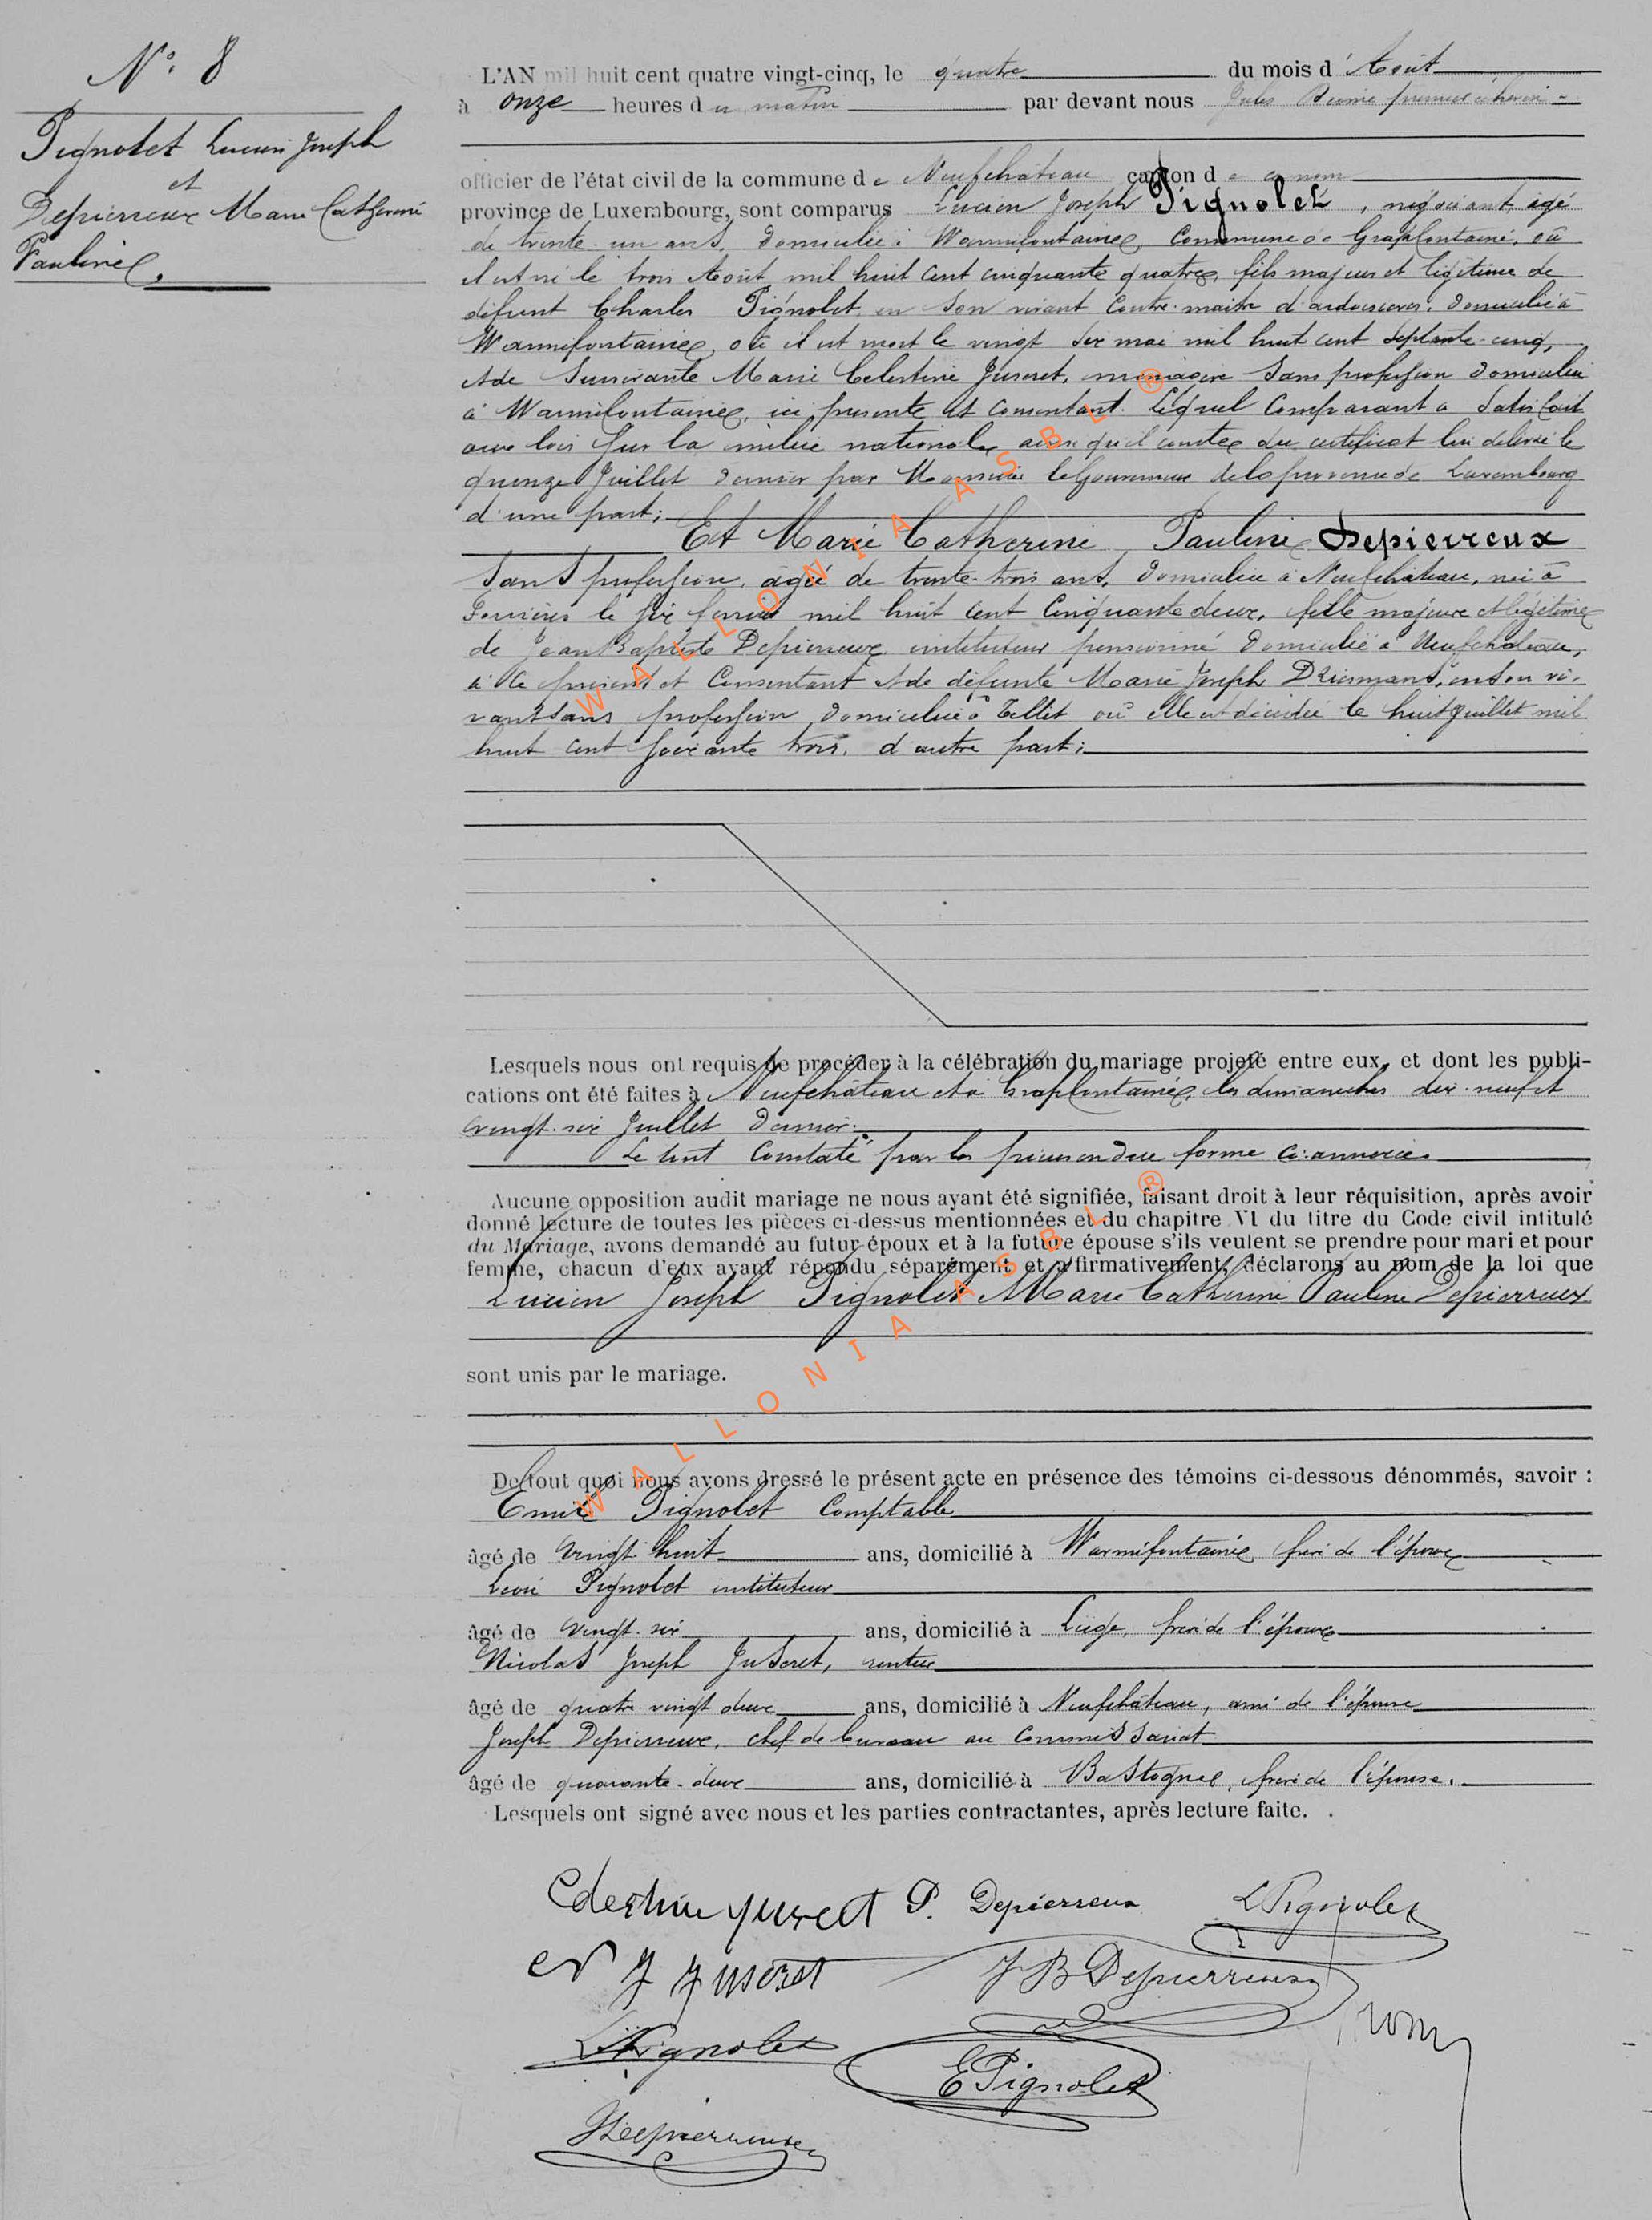 N° 8
Pignolet Lucien Joseph
et
Depierreux Marie Catherine
Pauline
L'AN mil huit cent quatre vingt-cinq, le quatre du mois d'Août
à onze heures du matin par devant nous Jules premier échevin
officier de l'état civil de la commune de Neufchâteau canton de ce nom
province de Luxembourg, sont comparus Lucien Joseph Pignolet, négociant, âgé
de trente un ans, domicilié à Warmifontaine, Commune de Grapfontaine, où
il est né le trois Août mil huit cent cinquante quatre, fils majeur et légitime de
défunt Charles Pignolet en son vivant Contre-maître d'ardoisières, domicilié à
Warmifontaine, où il est mort le vingt six mai mil huit cent septante-cinq,
et de Survivante Marie Celestine Juseret, ménagère Sans profession domiciliée
à Warmifontaine, ici présente et consentant. Lequel Comparant a Satisfait
aux lois sur la milice nationale, ainsi qu'il conste du certificat lui délivré le
quinze Juillet dernier par Monsieur le Gouverneur de la province de Luxembourg
d'une part;
Et Marie Catherine Pauline Depierreux
Sans profession, âgée de trente-trois ans, domiciliée à Neufchâteau, née à
le six février mil huit cent Cinquante deux, fille majeure et légitime
de Jean Baptiste Depierreux instituteur pensionné domicilié à Neufchâteau,
à ce présent et Consentant et de défunte Marie Joseph en son vi-
vant Sans profession domiciliée à Tillet où elle est décédée le huit Juillet mil
huit cent soixante trois, d'autre part;
Lesquels nous ont requis de procéder à la célébration du mariage projeté entre eux, et dont les publi-
cations ont été faites à Neufchâteau et à Grapfontaine, les dimanches dix-neuf et
vingt-six Juillet dernier.
Le tout Constaté par les pièces en due forme ci-annexées.
Aucune opposition audit mariage ne nous ayant été signifiée, faisant droit à leur réquisition, après avoir
donné lecture de toutes les pièces ci-dessus mentionnées et du chapitre VI du titre du Code civil intitulé
du Mariage, avons demandé au futur époux et à la future épouse s'ils veulent se prendre pour mari et pour
femme, chacun d'eux ayant répondu séparément et affirmativement, déclarons au nom de la loi que
Lucien Joseph Pignolet et Marie Catherine Pauline Depierreux
sont unis par le mariage.
De tout quoi nous avons dressé le présent acte en présence des témoins ci-dessous dénommés, savoir :
Emile Pignolet Comptable
âgé de vingt huit ans, domicilié à Warmifontaine frère de l'époux
Léon Pignolet instituteur
âgé de vingt-six ans, domicilié à Liège, frère de l'époux
Nicolas Joseph Juseret, rentier
âgé de quatre vingt deux ans, domicilié à Neufchâteau, ami de l'épouse
Joseph Depierreux, chef de bureau au Commissariat
âgé de quarante-deux ans, domicilié à Bastogne, frère de l'épouse.
Lesquels ont signé avec nous et les parties contractantes, après lecture faite.
Celestine Juseret P. Depierreux L Pignolet
N J Juseret J B Depierreux
L Pignolet E Pignolet
J Depierreux
WALLONIA ASBL ®
WALLONIA ASBL ®